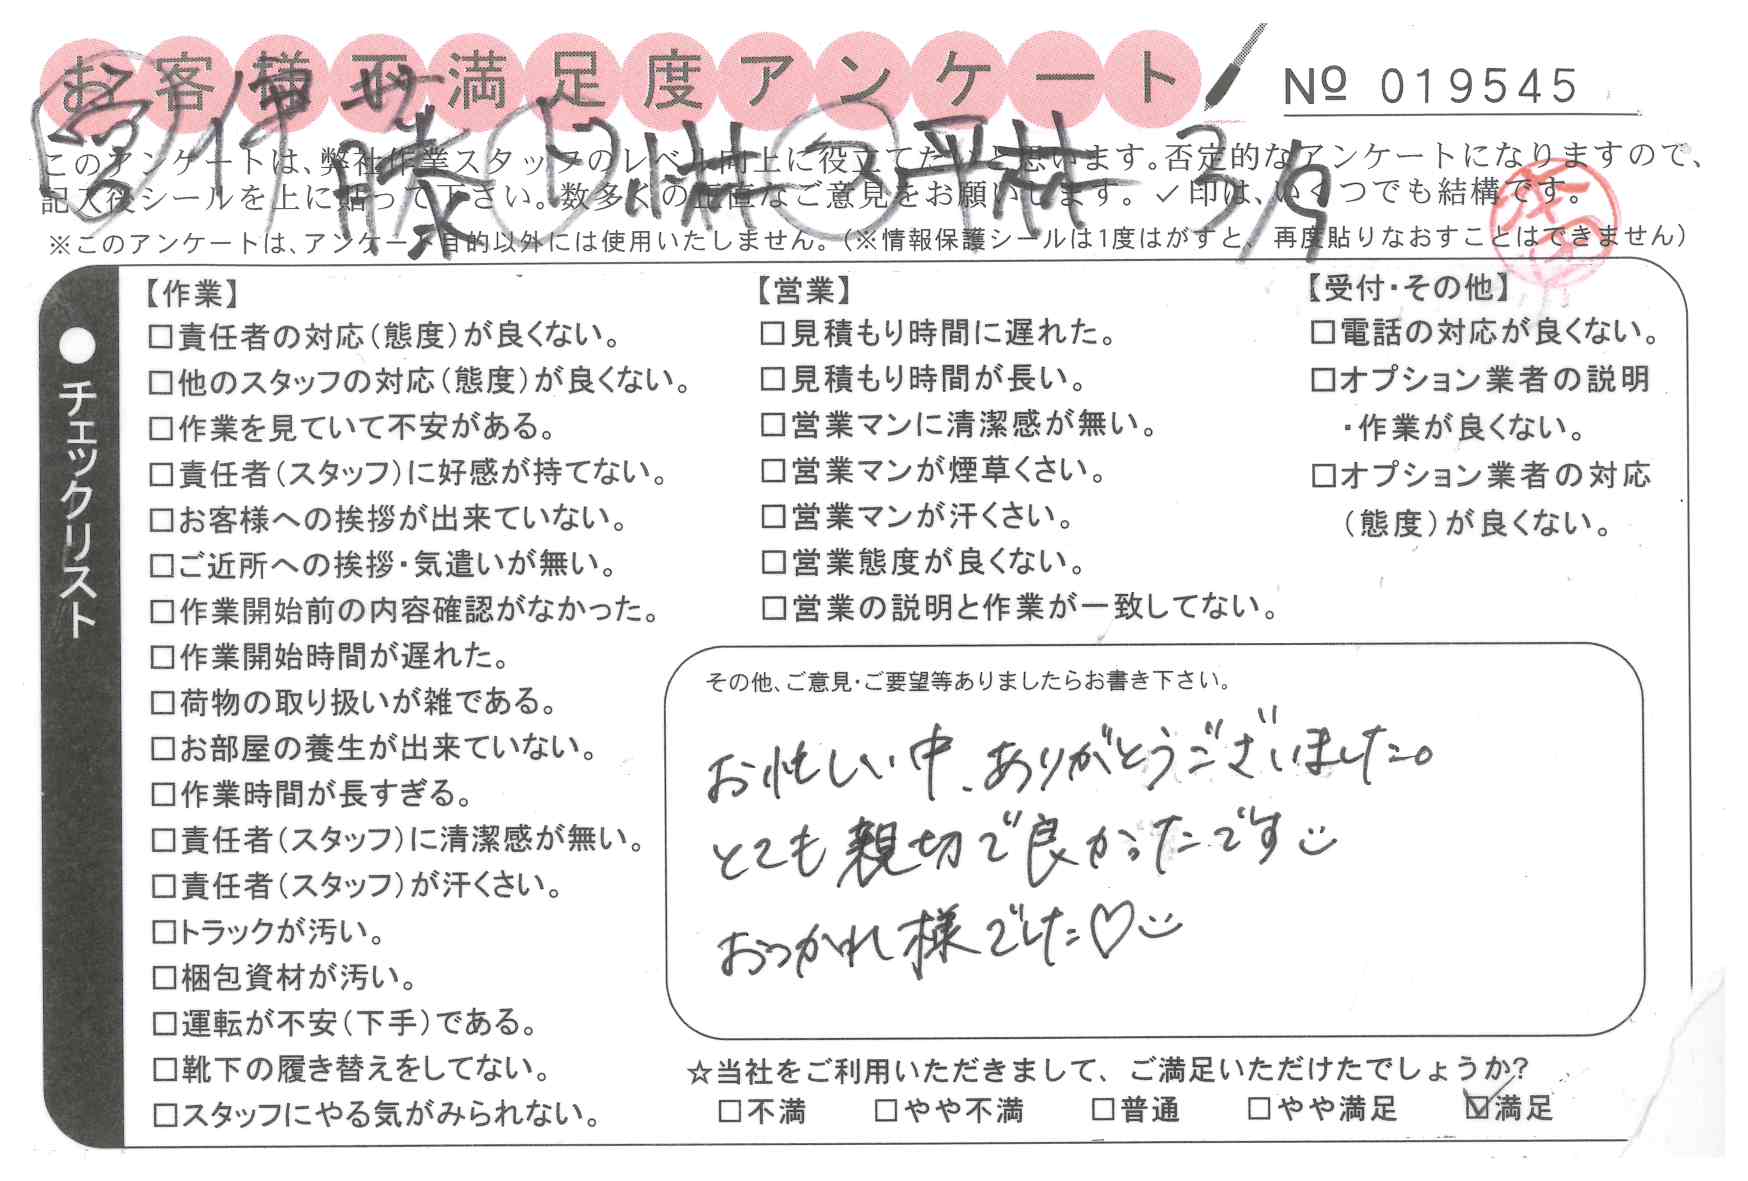 お客様不満足度アンケート
№ 019545
このアンケートは、弊社作業スタッフのレベル向上に役立てたいと思います。否定的なアンケートになりますので、
記入後シールを上に貼って下さい。数多くの正直なご意見をお願いします。✓印は、いくつでも結構です。
※このアンケートは、アンケート目的以外には使用いたしません。（※情報保護シールは1度はがすと、再度貼りなおすことはできません）
営 伊藤 小林 平林 3/9
●チェックリスト
【作業】
□責任者の対応（態度）が良くない。
□他のスタッフの対応（態度）が良くない。
□作業を見ていて不安がある。
□責任者（スタッフ）に好感が持てない。
□お客様への挨拶が出来ていない。
□ご近所への挨拶・気遣いが無い。
□作業開始前の内容確認がなかった。
□作業開始時間が遅れた。
□荷物の取り扱いが雑である。
□お部屋の養生が出来ていない。
□作業時間が長すぎる。
□責任者（スタッフ）に清潔感が無い。
□責任者（スタッフ）が汗くさい。
□トラックが汚い。
□梱包資材が汚い。
□運転が不安（下手）である。
□靴下の履き替えをしてない。
□スタッフにやる気がみられない。
【営業】
□見積もり時間に遅れた。
□見積もり時間が長い。
□営業マンに清潔感が無い。
□営業マンが煙草くさい。
□営業マンが汗くさい。
□営業態度が良くない。
□営業の説明と作業が一致してない。
【受付・その他】
□電話の対応が良くない。
□オプション業者の説明
・作業が良くない。
□オプション業者の対応
（態度）が良くない。
その他、ご意見・ご要望等ありましたらお書き下さい。
お忙しい中、ありがとうございました。
とても親切で良かったです
おつかれ様でした♡
☆当社をご利用いただきまして、ご満足いただけたでしょうか?
□不満 □やや不満 □普通 □やや満足 ☑満足